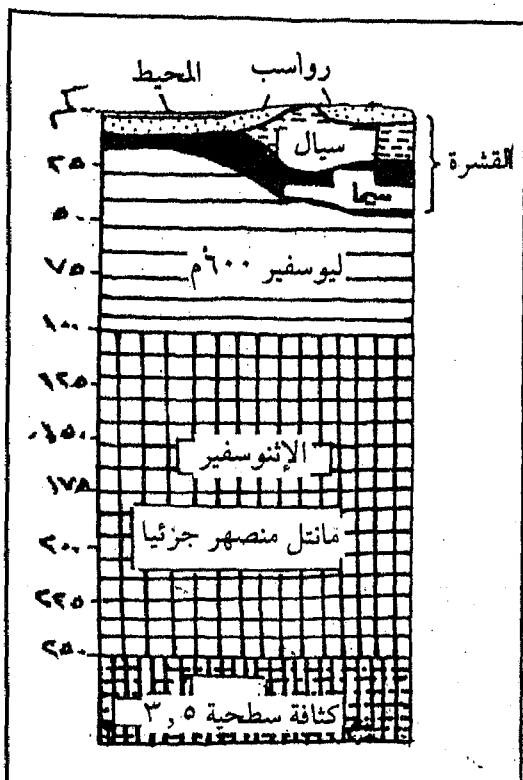 المحيط رواسب
كم
سيال
القشرة
٢٥
سيما
٥٠
ليوسفير ٦٠٠م
٧٥
١٠٠
١٢٥
١٥٠
الإثنوسفير
١٧٥
مانتل منصهر جزئيا
٢٠٠
٢٢٥
٢٥٠
كثافة سطحية ٣,٥